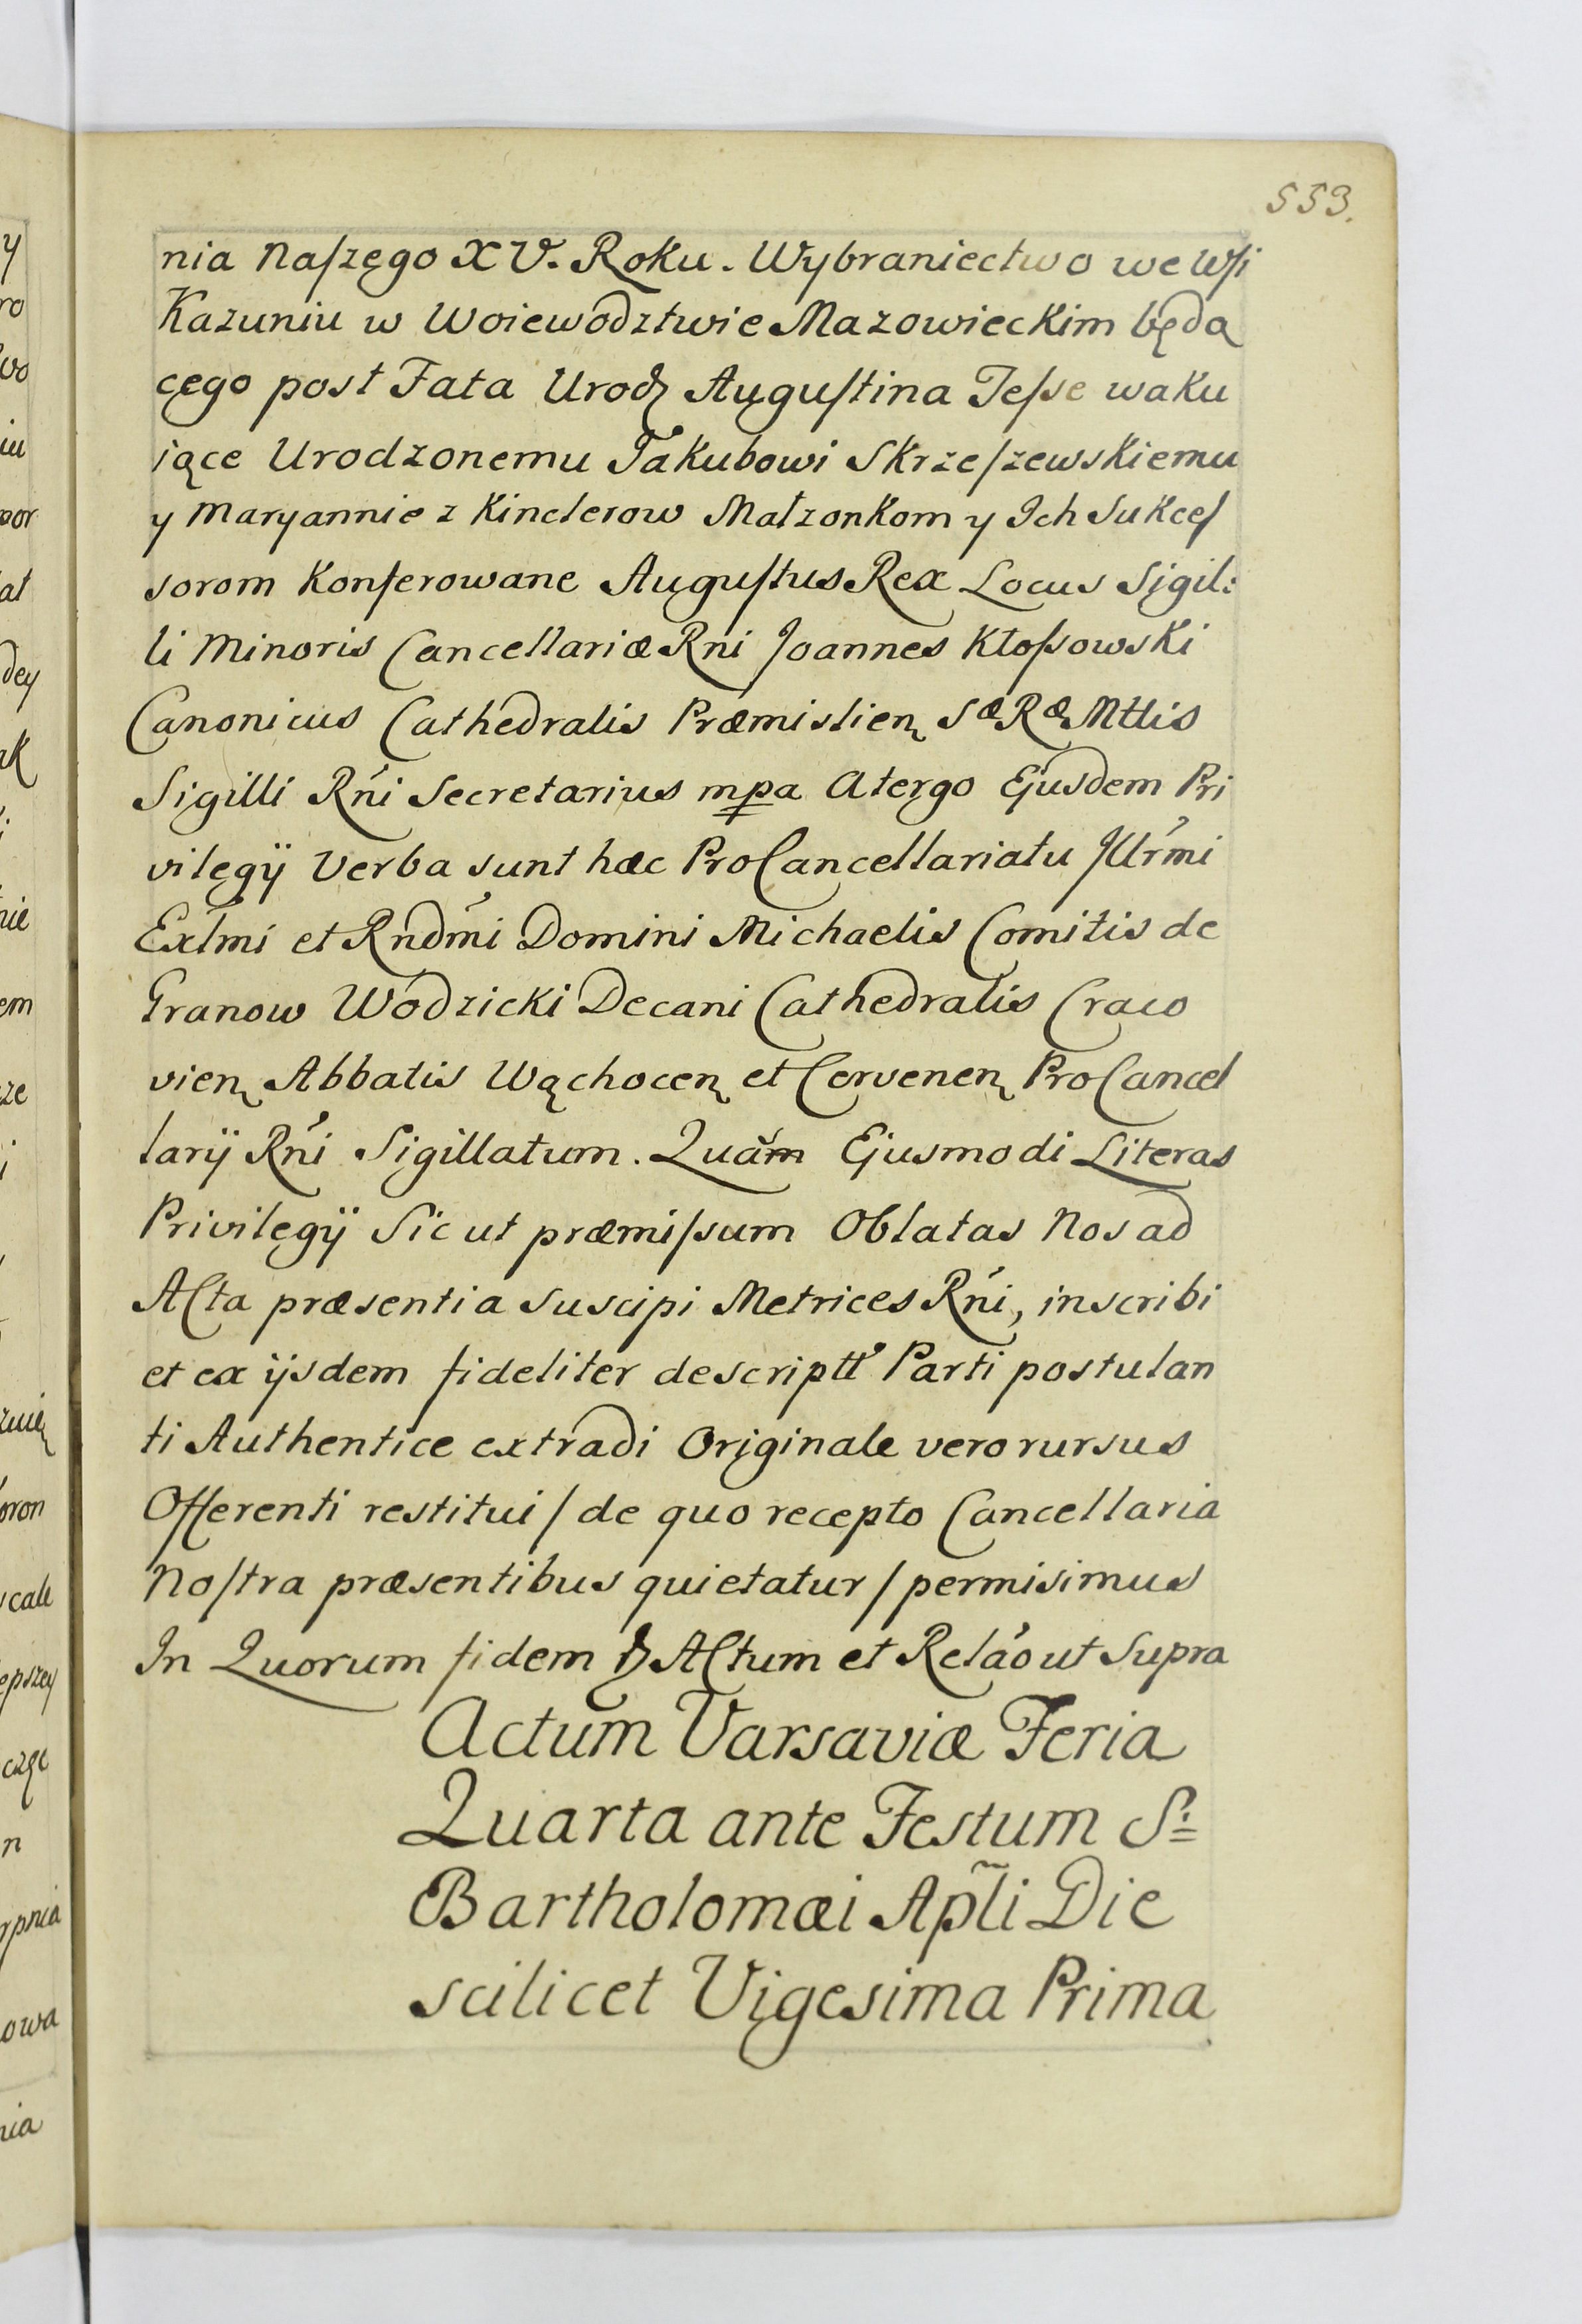 553.
nia Naſzego XV. Roku. Wybraniectwo we Wſi
Kazuniu w Woiewodztwie Mazowieckim będą
cego post Fata Urodz Auguſtina Jeſse waku
iące Urodzonemu Jakubowi Skrzeſzewskiemu
y Maryannie z Kinclerow Małzonkom y Ich Sukceſ
sorom Konferowane Auguſtus Rex Locus Sigil:
li Minoris Cancellariæ Rni Joannes Kłoſsowski
Canonicus Cathedralis Præmislien SæRæMttis
Sigilli Rńi Secretarius mpa Atergo Ejusdem Pri
vilegÿ Verba sunt hæc ProCancellariatu Jllr̃mi
Exlmi et Rndmi Domini Michaelis Comitis de
Granow Wodzicki Decani Cathedralis Craco
vien Abbatis Wąchocen et Cervenen ProCancel
larÿ Rńi Sigillatum. Quăm Ejusmodi Literas
Privilegÿ Sic ut præmiſsum Oblatas Nos ad
Acta præsentia suscipi Metrices Rńi, inscribi
et ex ijsdem fideliter descriptt Parti postulan
ti Authentice extradi Originale vero rursus
Offerenti restitui / de quo recepto Cancellaria
Noſtra præsentibus quietatur / permisimus
In Quorum fidem Actum et Relão ut Supra
Actum Varsaviæ Feria
Quarta ante Festum S:
Bartholomæi Apl̃i Die
scilicet Vigesima Prima